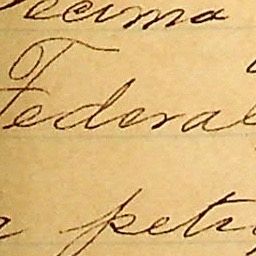 Decima
Federal
a peti